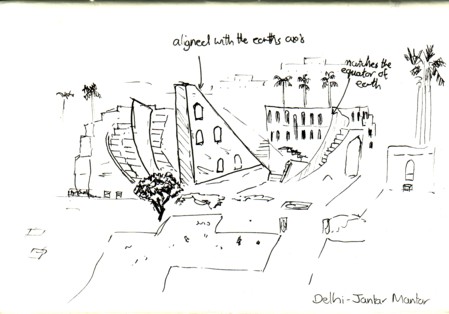 aligned with the earths axis
matches the
equator of
earth
Delhi-Jantar Mantar